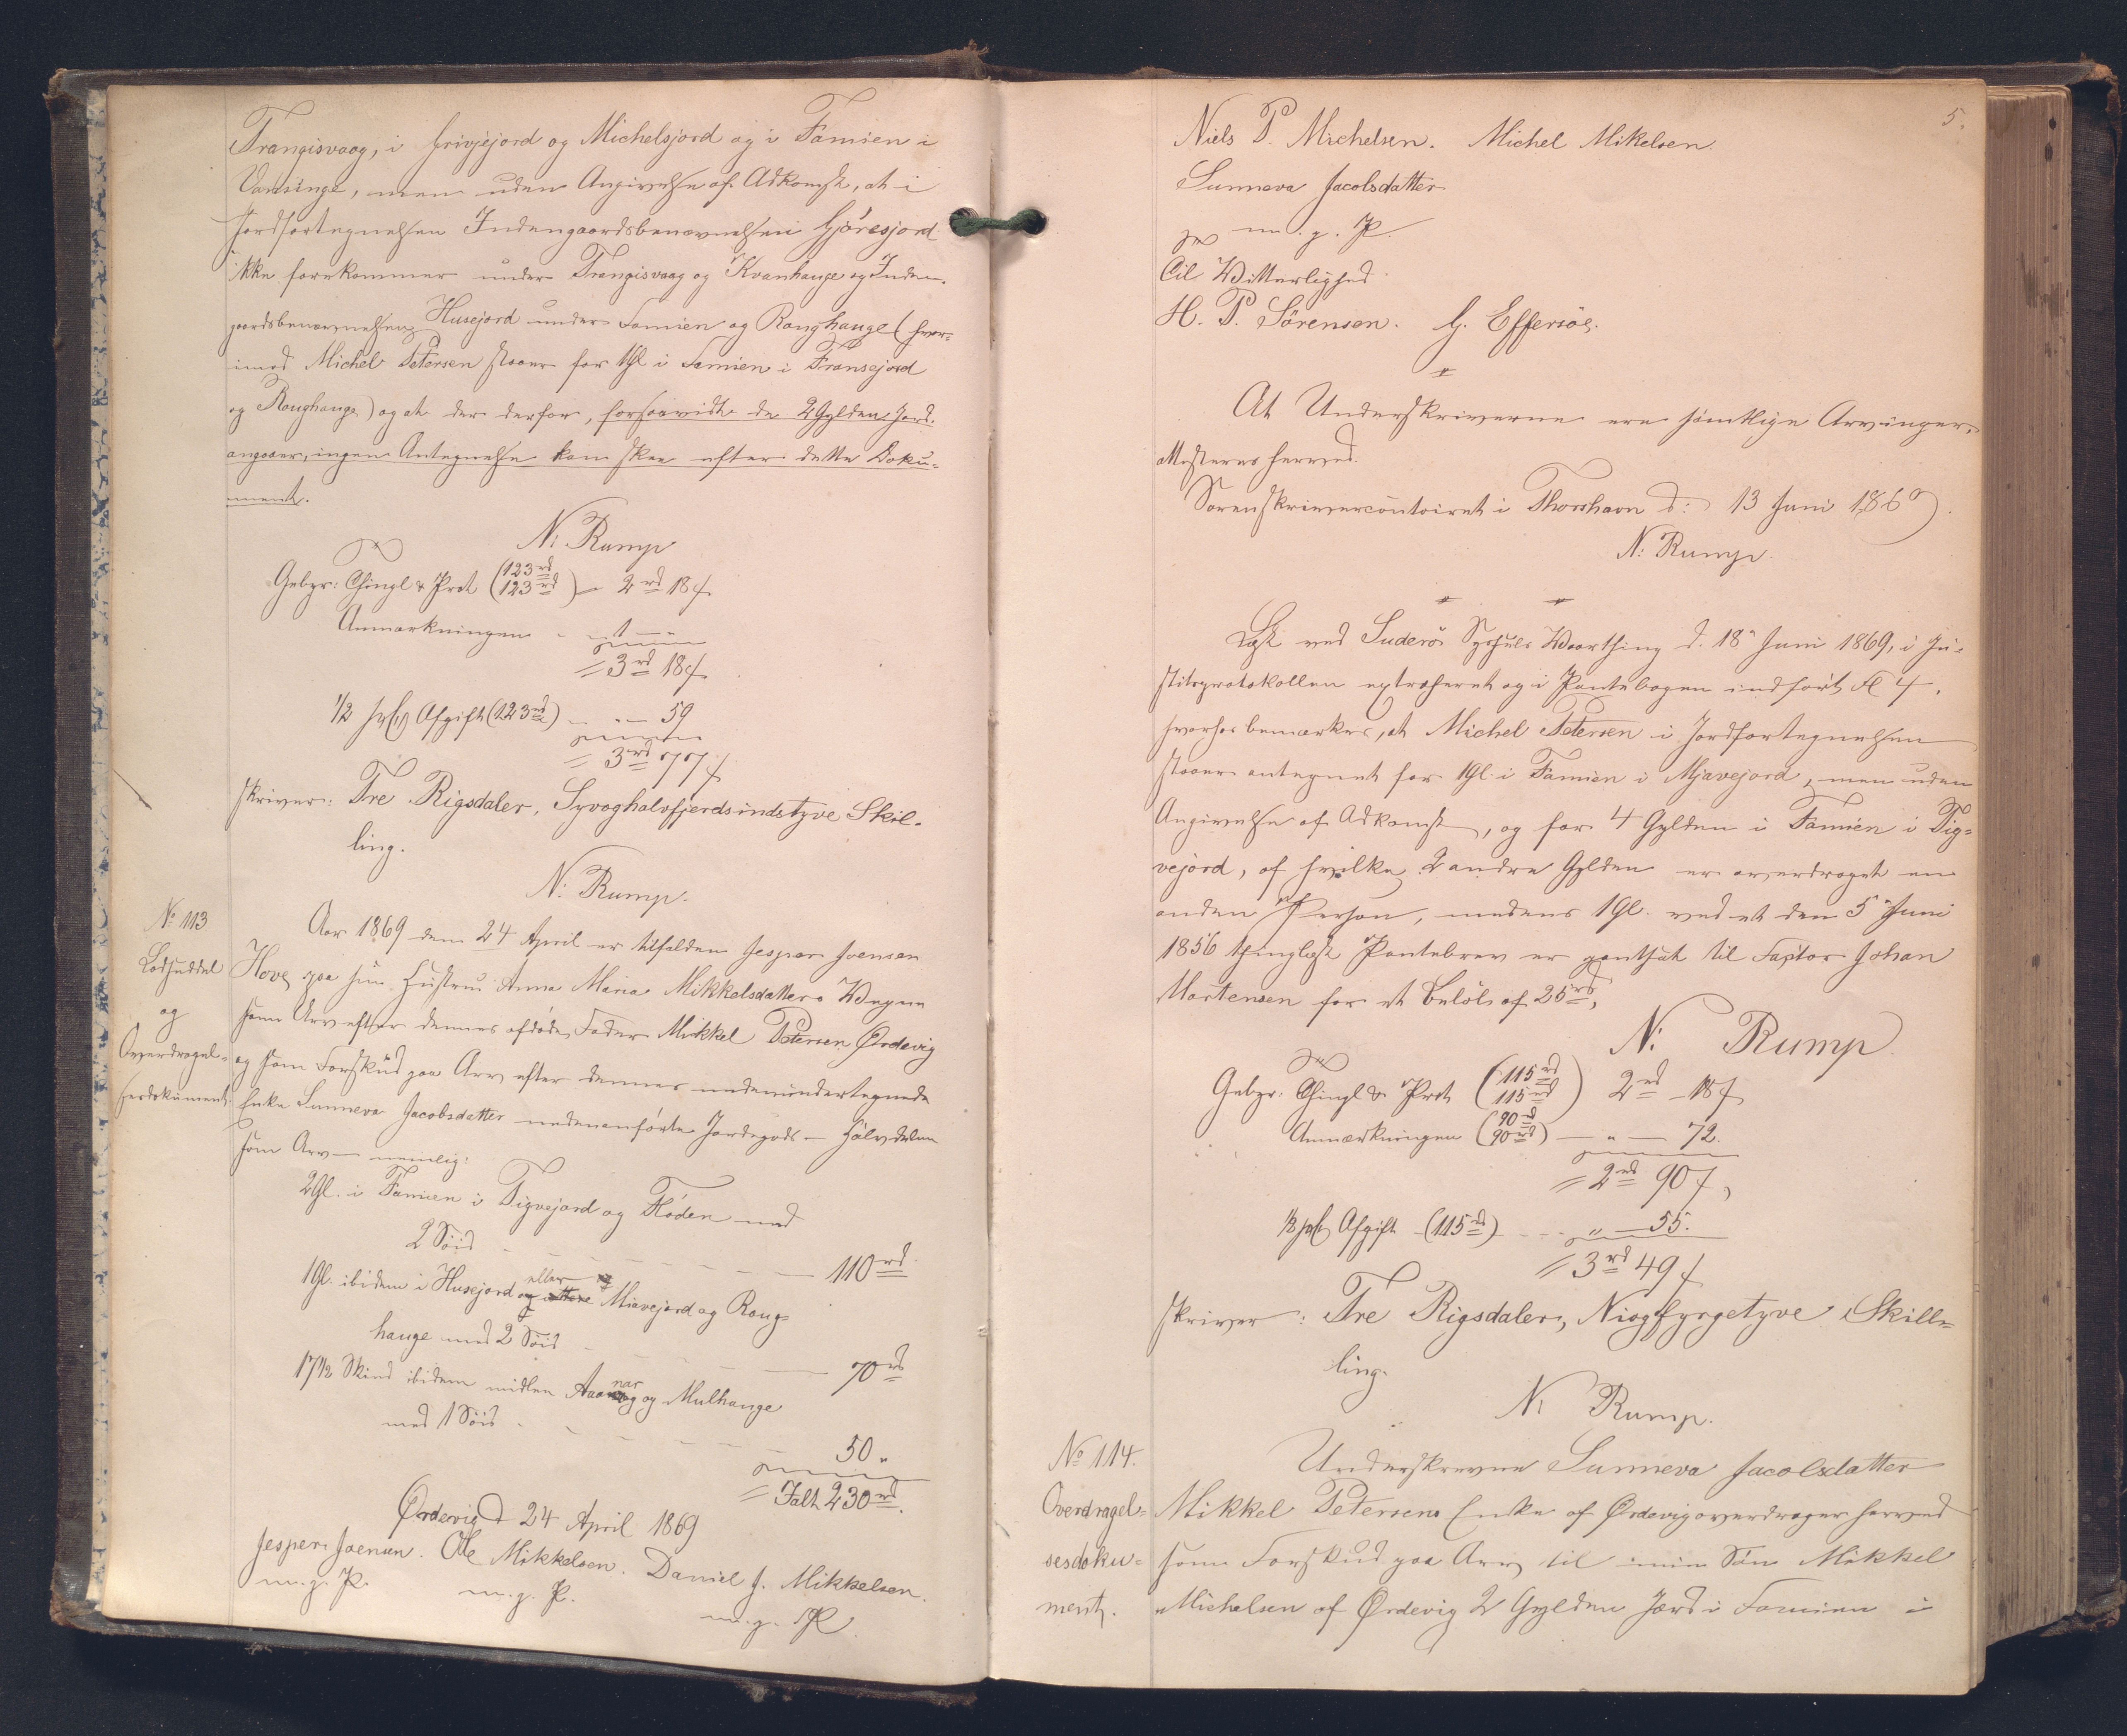 Trangisvaag, i Grivjejord og Michelsjord og i Famien i
men uden Angivelse af Adkomst, at i
Jordfortegnelsen Indengaardsbenævnelsen Gjøresjord
ikke forekommer under Trangisvaag og Kvanhauge og Inden-
gaardsbenævnelsen Husejord under Famien og Ranghauge (hvor-
imod Michel Petersen staaer for 1 Gl i Famien i Fransejord
og Ranghauge) og at der derfor, forsaavidt de 2 Gylden Jord
angaaer, ingen Antegnelse kan skee efter dette Doku-
ment.
N: Rump
Gebyr: Thingl & Prot (123 rd 123 rd) – 2 rd 18 ſ.
Anmærkningen - 1 — "
= 3 rd 18 ſ.
1/2 pCt Afgift (123 rd) — " — 59
= 3 rd 77 ſ
skriver: Tre Rigsdaler, Syvoghalvfjerdsindstyve Skil-
ling.
N: Rump.
No 113
Lodseddel
og
Overdragel-
sesdokument.
Aar 1869 den 24 April er tilfalden Jesper Joensen
Hove paa sin Hustru Anna Maria Mikkelsdatters Wegne
som Arv efter dennes afdøde Fader Mikkel Petersen Ørdevig
og som Forskud paa Arv efter dennes nedenundertegnede
Enke Sunneva Jacobsdatter nedenanførte Jordegods – Halvdelen
som Arv – nemlig:
2 Gl. i Famien i Tigvejord og Høden med
2 Søid - - - - - 110 rd.
1 Gl. ibidem i Husejord og eller Miavejord og Rang-
hauge med 2 Søid - - - - 70 rd
17 1/2 Skind ibidem midlen og Mulhauge
med 1 Søid - - - - - 50 "
= Ialt 230 rd.
Ørdevig d 24 April 1869
Jesper Joensen. Ole Mikkelsen. Daniel J. Mikkelsen.
m. g. P. m. g. P. m. g. P.
5.
Niels P. Michelsen. Michel Mikelsen.
Sunneva Jacobsdatter
m. g. P.
Til Witterlighed
H. P. Sörensen. G. Effersöe.
At Underskriverne ere samtlige Arvinger,
attesteres herved.
Sorenskrivercontoiret i Thorshavn d: 13 Juni 1869.
N: Rump.
Læst ved Suderö Syssels Waarthing d. 18 Juni 1869, i Ju-
stitsprotokollen extraheret og i Pantebogen indført Fl 4,
hvorhos bemærkes, at Michel Petersen i Jordfortegnelsen
staaer antegnet for 1 Gl. i Famien i Mjavejord, men uden
Angivelse af Adkomst, og for 4 Gylden i Famien i Tig-
vejord, af hvilke 2 andre Gylden er overdraget en
anden Person, medens 1 Gl. ved et den 5 Juni
1856 thinglæst Pantebrev er pantsat til Factor Johan
Mortensen for et Beløb af 25 rd,
N: Rump.
Gebyr: Thingl & Prot (115 rd 115 rd) 2 rd 18 ſ
Anmærkningen (90 rd 90 rd) — " — 72.
= 2 rd 90 ſ,
1/2 pCt Afgift (115 rd) - - - " — 55.
= 3 rd 49 ſ
skriver: Tre Rigsdaler, Niogfyrgetyve Skil-
ling.
N: Rump.
No 114.
Overdragel-
sesdoku-
ment.
Underskrevne Sunneva Jacobsdatter
Mikkel Petersens Enke af Ørdevig overdrager herved
som Forskud paa Arv til min Søn Mikkel
Michelsen af Ørdevig 2 Gylden Jord i Famien i